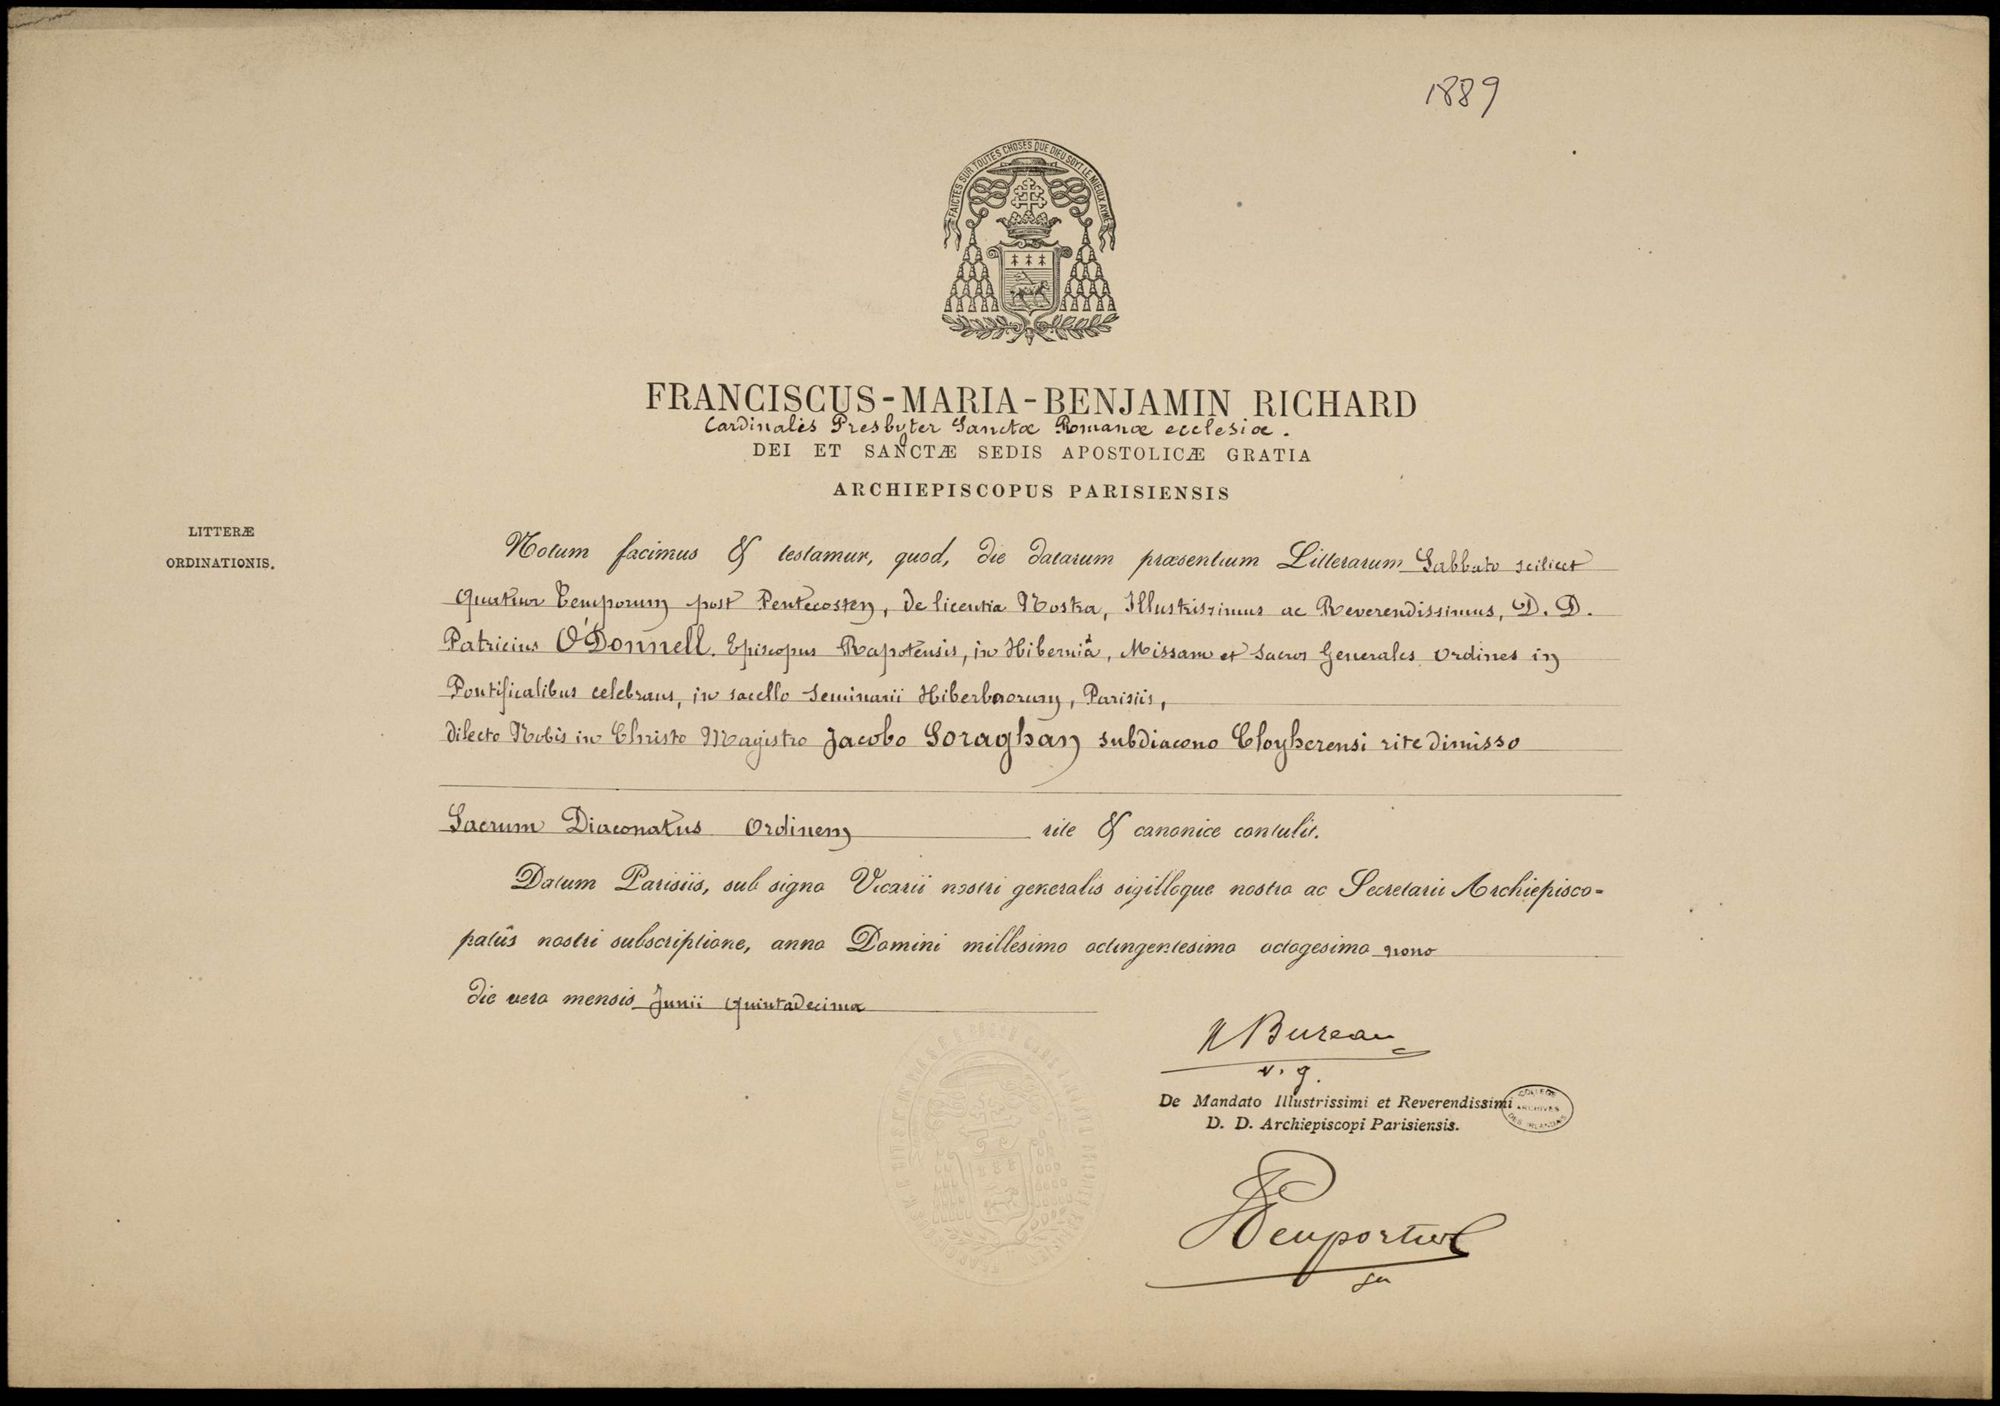 1889
FAICTES SUR TOUTES CHOSES QUE DIEU SOYT LE MIEULX AYMÉ
FRANCISCUS-MARIA-BENJAMIN RICHARD
Cardinalis Presbyter Sanctæ Romanæ ecclesiæ.
DEI ET SANCTÆ SEDIS APOSTOLICÆ GRATIA
ARCHIEPISCOPUS PARISIENSIS
LITTERÆ
ORDINATIONIS.
Notum facimus & testamur, quod, die datarum præsentium Litterarum Sabbato scilicet
Quatuor Temporum post Pentecosten, de licentia Nostra, Illustrissimus ac Reverendissimus, D. D.
Patricius O'Donnell. Episcopus Rapotensis, in Hiberniâ, Missam et Sacros Generales Ordines in
Pontificalibus celebrans, in sacello Seminarii Hibernorum, Parisiis,
dilecto Nobis in Christo Magistro Jacobo Soraghan subdiacono Cloyherensi rite dimisso
Sacrum Diaconatus Ordinem rite & canonice contulit.
Datum Parisiis, sub signo Vicarii nostri generalis sigilloque nostro ac Secretarii Archiepisco-
patûs nostri subscriptione, anno Domini millesimo octingentesimo octogesimo nono
die vero mensis Junii quintadecima
Bureau
v. g.
De Mandato Illustrissimi et Reverendissimi
D. D. Archiepiscopi Parisiensis.
COLLEGE
ARCHIVES
DES IRLANDAIS